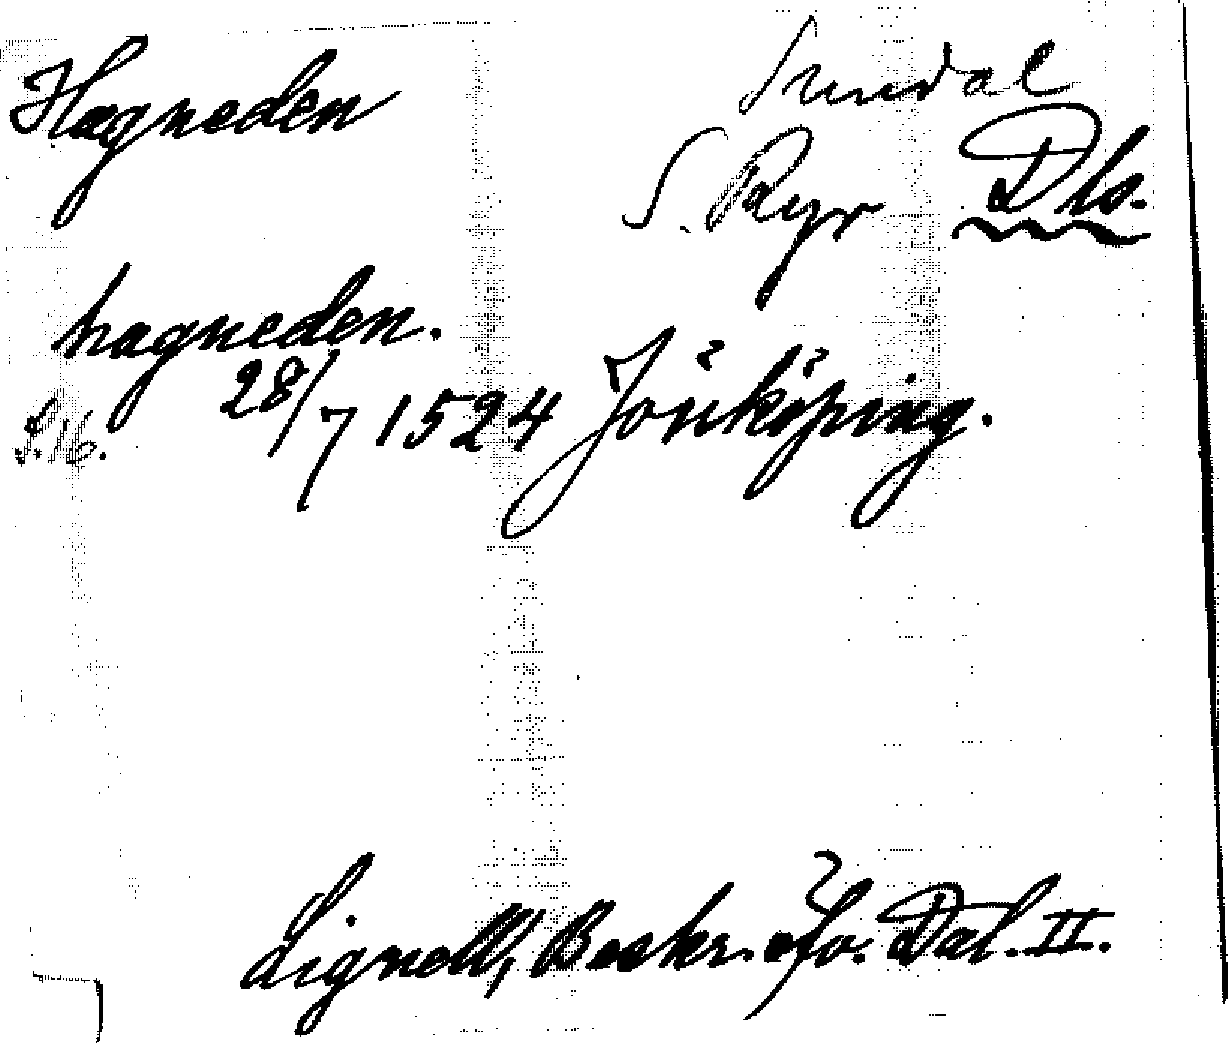 Hagneden
Sundal
S. Ryr Dls.
hagneden.
S.16. 28/7 1524 Jönköping.
Lignell, Beskr. öfv. Dal. II.